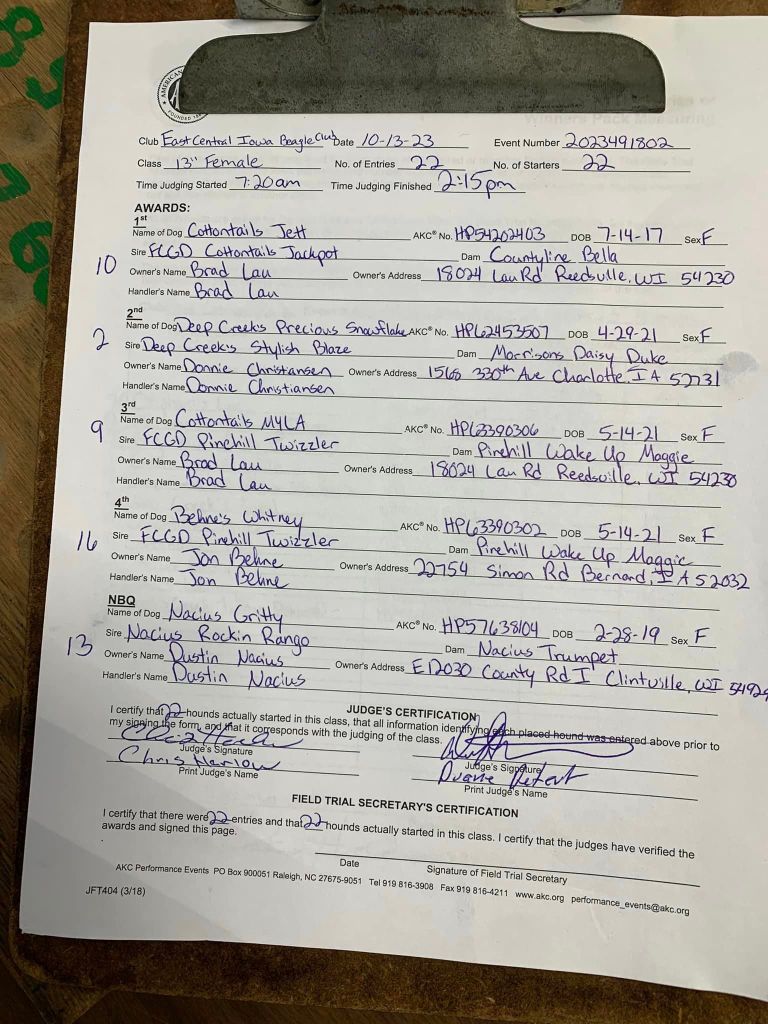 AMERICAN
FOUNDED
Winners Pack Measuring
Club East Central Iowa Beagle Club Date 10-13-23 Event Number 2023491802
Class 13" Female No. of Entries 22 No. of Starters 22
Time Judging Started 7:20am Time Judging Finished 2:15pm
AWARDS:
1st
Name of Dog Cottontails Jett AKC® No. HP54202403 DOB 7-14-17 Sex F
Sire FCGD Cottontails Jackpot Dam Countyline Bella
10 Owner's Name Brad Lau Owner's Address 18024 Lau Rd Reedsville, WI 54230
Handler's Name Brad Lau
2nd
Name of Dog Deep Creek's Precious Snowflake AKC® No. HP62453507 DOB 4-29-21 Sex F
2 Sire Deep Creek's Stylish Blaze Dam Morrisons Daisy Duke
Owner's Name Donnie Christansen Owner's Address 1568 330th Ave Charlotte, IA 52731
Handler's Name Donnie Christiansen
3rd
Name of Dog Cottontails MYLA AKC® No. HP63390306 DOB 5-14-21 Sex F
9 Sire FCGD Pinehill Twizzler Dam Pinehill Wake Up Maggie
Owner's Name Brad Lau Owner's Address 18024 Lau Rd Reedsville, WI 54230
Handler's Name Brad Lau
4th
Name of Dog Behne's Whitney AKC® No. HP63390302 DOB 5-14-21 Sex F
16 Sire FCGD Pinehill Twizzler Dam Pinehill Wake Up Maggie
Owner's Name Jon Behne Owner's Address 22754 Simon Rd Bernard, IA 52032
Handler's Name Jon Behne
NBQ
Name of Dog Nacius Gritty AKC® No. HP57638104 DOB 2-28-19 Sex F
13 Sire Nacius Rockin Rango Dam Nacius Trumpet
Owner's Name Dustin Nacius Owner's Address E12030 County Rd I Clintville, WI 54929
Handler's Name Dustin Nacius
JUDGE'S CERTIFICATION
I certify that 22 hounds actually started in this class, that all information identifying each placed hound was entered above prior to
my signing the form, and that it corresponds with the judging of the class.
Judge's Signature Judge's Signature
Chris Harlow Duane
Print Judge's Name Print Judge's Name
FIELD TRIAL SECRETARY'S CERTIFICATION
I certify that there were 22 entries and that 22 hounds actually started in this class. I certify that the judges have verified the
awards and signed this page.
Date Signature of Field Trial Secretary
AKC Performance Events PO Box 900051 Raleigh, NC 27675-9051 Tel 919 816-3908 Fax 919 816-4211 www.akc.org performance_events@akc.org
JFT404 (3/18)